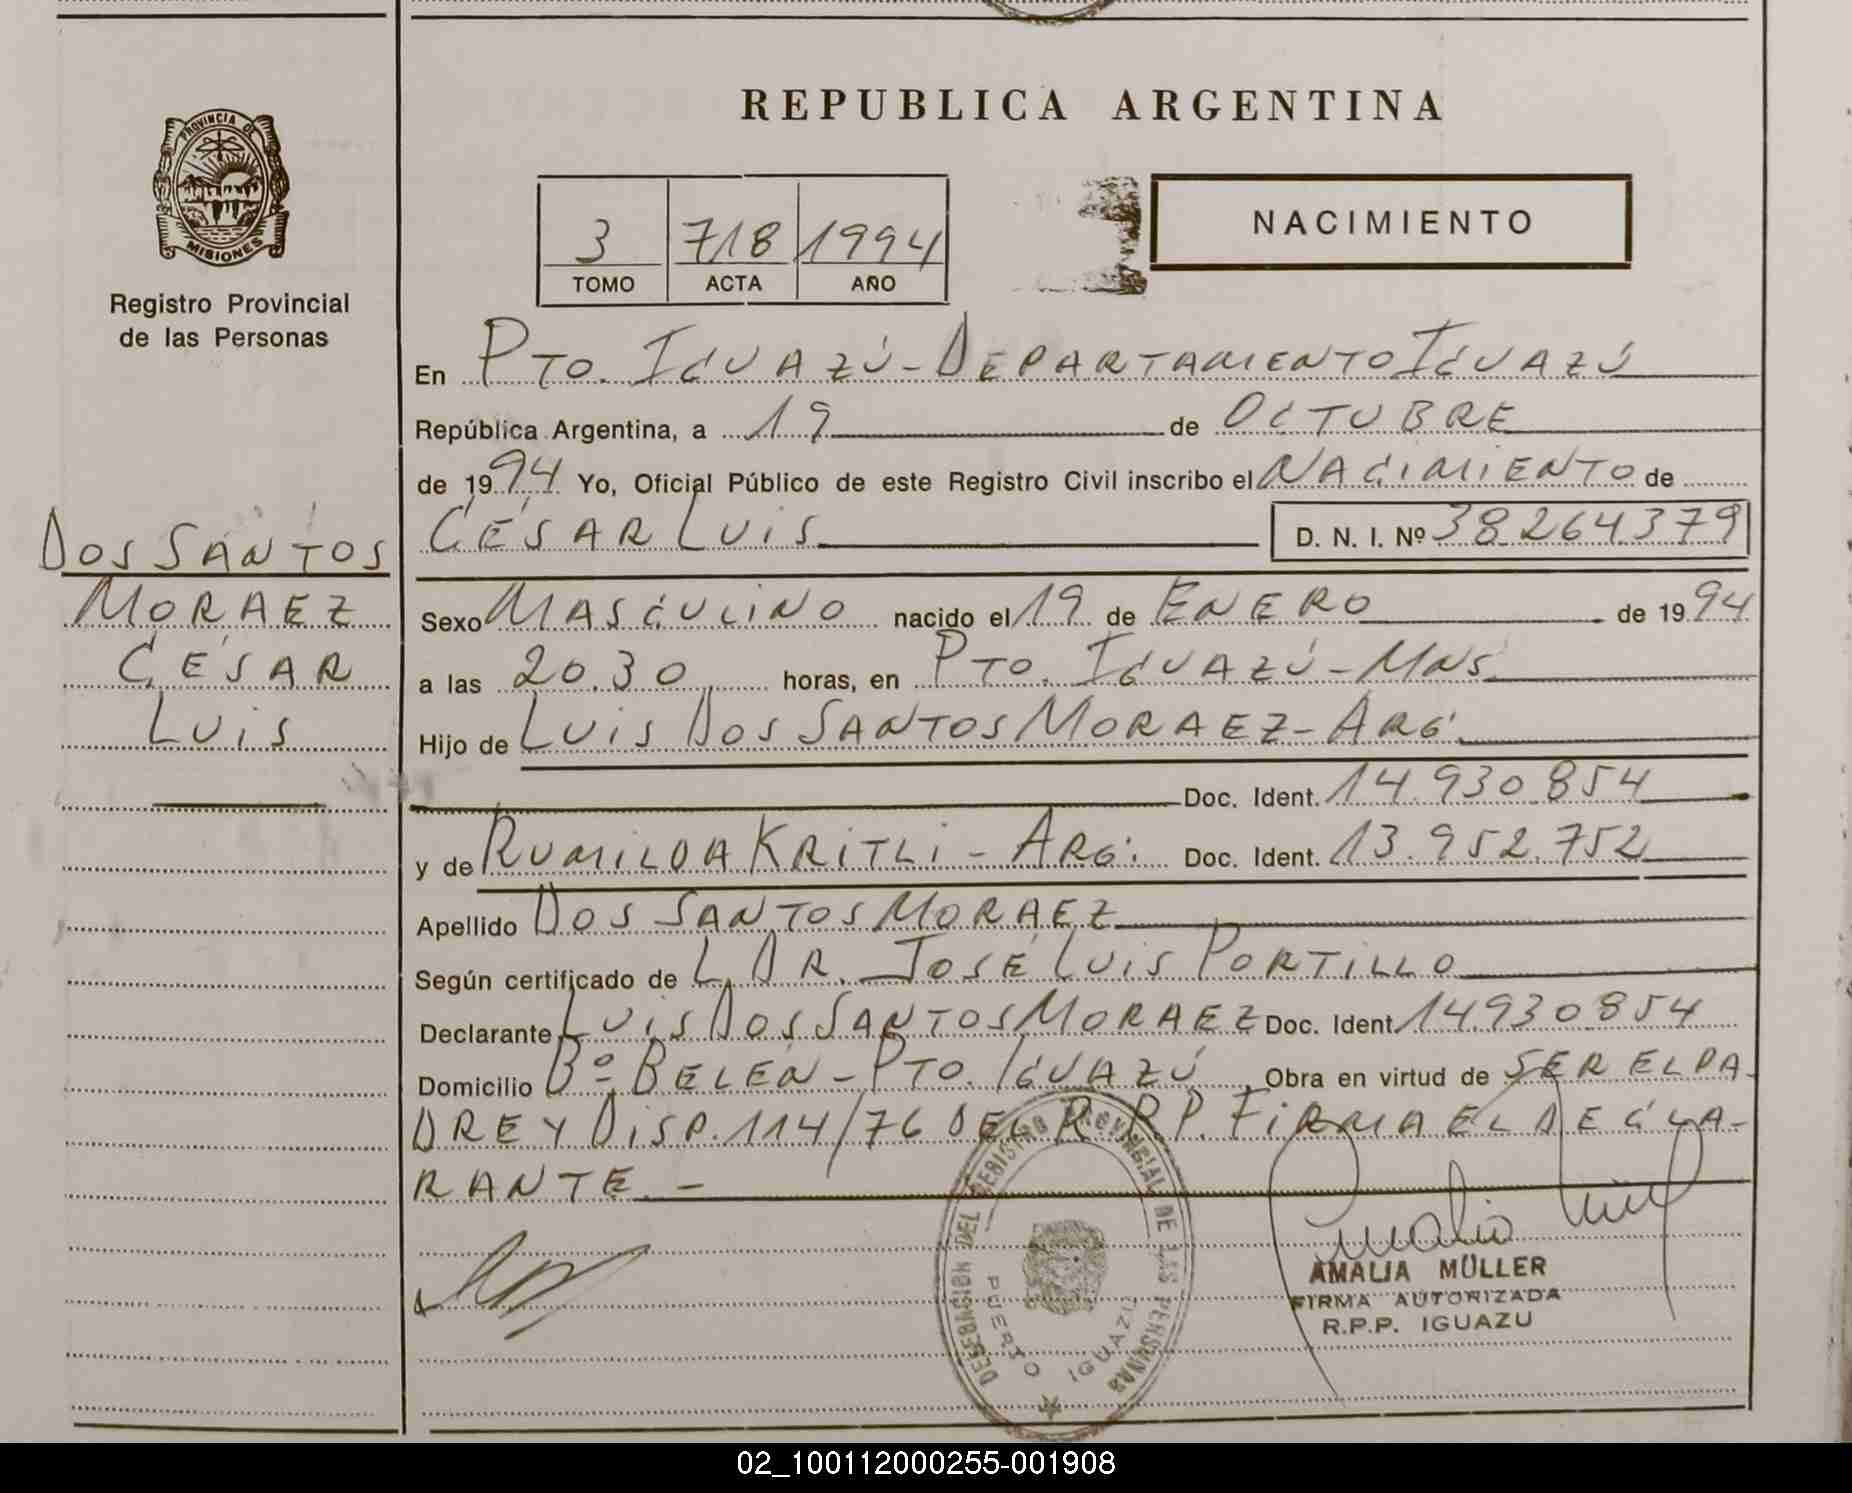 PROVINCIA DE
MISIONES
Registro Provincial
de las Personas
DOS SANTOS
MORAEZ
CÉSAR
LUIS
REPUBLICA ARGENTINA
3 718 1994
TOMO ACTA AÑO
NACIMIENTO
En PTO. IGUAZÚ - DEPARTAMENTO IGUAZÚ
República Argentina, a 19 de OCTUBRE
de 1994 Yo, Oficial Público de este Registro Civil inscribo el NACIMIENTO de
CÉSAR LUIS D. N. I. Nº 38264379
Sexo MASCULINO nacido el 19 de ENERO de 1994
a las 20.30 horas, en PTO. IGUAZÚ - MNS.
Hijo de LUIS DOS SANTOS MORAEZ - ARG.
Doc. Ident. 14.930.854
y de RUMILDA KRITLI - ARG. Doc. Ident. 13.952.752
Apellido DOS SANTOS MORAEZ
Según certificado de L. DR. JOSÉ LUIS PORTILLO
Declarante LUIS DOS SANTOS MORAEZ Doc. Ident. 14.930.854
Domicilio Bº BELÉN - PTO. IGUAZÚ, Obra en virtud de SER EL PA-
DRE Y DISP. 114/76 DEL R.R.P. FIRMA EL DECLA-
RANTE. -
DELEGACION DEL REGISTRO PROVINCIAL DE LAS PERSONAS
PUERTO IGUAZU
Amalia Müller
AMALIA MÜLLER
FIRMA AUTORIZADA
R.P.P. IGUAZU
02_100112000255-001908